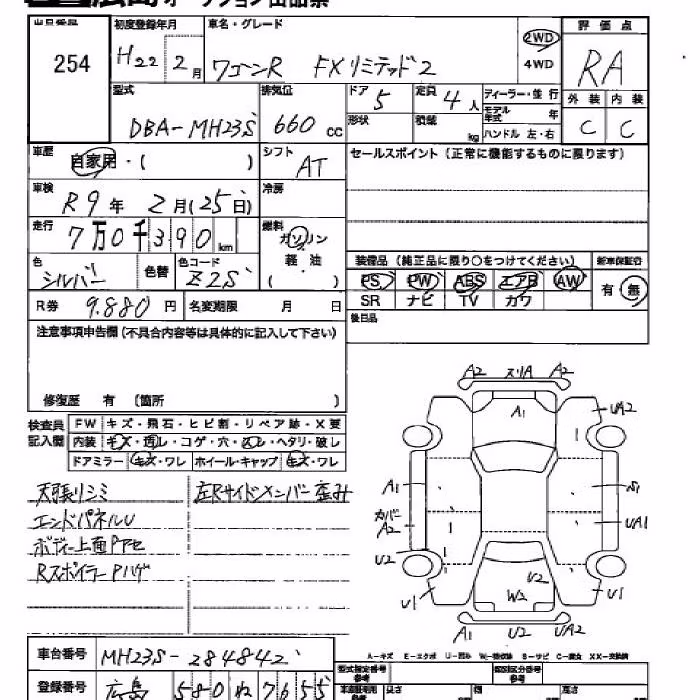 広島オークション出品票
出品番号 254
初度登録年月 H22 2月
車名・グレード ワゴンR FXリミテッド2
2WD
4WD
評価点 RA
外装 内装
C C
型式 DBA-MH23S
排気位 660 cc
ドア 5
定員 4人
形状
積載 kg
ディーラー・並行
モデル年式 年
ハンドル 左・右
車歴 自家用・( )
シフト AT
セールスポイント(正常に機能するものに限ります)
車検 R9年 2月(25日)
冷房
走行 7万0千390km
燃料 ガソリン
軽油
( )
色 シルバー
色替
色コード Z2S
装備品(純正品に限り○をつけてください)
新車保証書
PS PW ABS エアB AW
SR ナビ TV カワ
有・無
R券 9.880円
名変期限 月 日
後日品
注意事項申告欄(不具合内容等は具体的に記入して下さい)
修復歴 有(箇所 )
検査員記入欄
FW キズ・飛石・ヒビ割・リペア跡・X要
内装 キズ・汚レ・コゲ・穴・スレ・ヘタリ・破レ
ドアミラー キズ・ワレ ホイール・キャップ キズ・ワレ
天張リシミ
エンドパネルU
ボディー上面Pアセ
RスポイラーPハゲ
左Rサイドメンバー歪み
A2 スリA A2
A1
UA2
A1
S1
カバーA2
UA1
U2
U2
W2
U1
U1
A1 U2 UA2
A-キズ E-エクボ U-凹み S-サビ C-腐食 XX-交換済
車台番号 MH23S-284842
登録番号 広島 580 ね 7655
型式指定番号 参考
類別区分番号 参考
長さ
幅
高さ